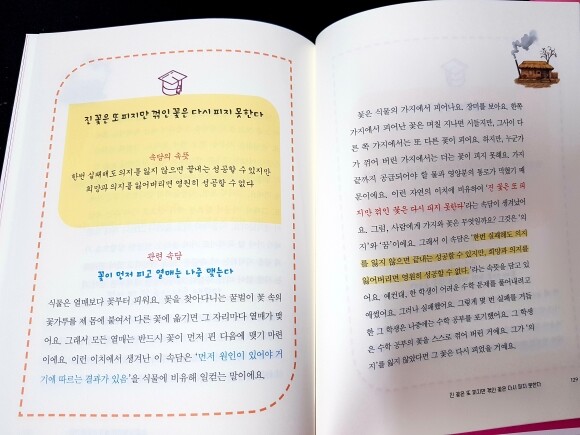 진 꽃은 또 피지만 꺾인 꽃은 다시 피지 못한다
속담의 속뜻
한번 실패해도 의지를 잃지 않으면 끝내는 성공할 수 있지만
희망과 의지를 잃어버리면 영원히 성공할 수 없다
관련 속담
꽃이 먼저 피고 열매는 나중 맺는다
식물은 열매보다 꽃부터 피워요. 꽃을 찾아다니는 꿀벌이 꽃 속의
꽃가루를 제 몸에 붙여서 다른 꽃에 옮기면 그 자리마다 열매가 맺
어요. 그래서 모든 열매는 반드시 꽃이 먼저 핀 다음에 맺기 마련
이에요. 이런 이치에서 생겨난 이 속담은 '먼저 원인이 있어야 거
기에 따르는 결과가 있음'을 식물에 비유해 일컫는 말이에요.
꽃은 식물의 가지에서 피어나요. 장미를 보아요. 한쪽
가지에서 피어난 꽃은 며칠 지나면 시들지만, 그사이 다
른 쪽 가지에서는 또 다른 꽃이 피어요. 하지만, 누군가
가 꺾어 버린 가지에서는 더는 꽃이 피지 못해요. 가지
끝까지 공급되어야 할 물과 영양분의 통로가 막혔기 때
문이에요. 이런 자연의 이치에 비유하여 '진 꽃은 또 피
지만 꺾인 꽃은 다시 피지 못한다'라는 속담이 생겨났어
요. 그럼, 사람에게 가지와 꽃은 무엇일까요? 그것은 '의
지'와 '꿈'이에요. 그래서 이 속담은 '한번 실패해도 의지
를 잃지 않으면 끝내는 성공할 수 있지만, 희망과 의지를
잃어버리면 영원히 성공할 수 없다.'라는 속뜻을 담고 있
어요. 예컨대, 한 학생이 어려운 수학 문제를 풀어내려고
애썼어요. 그러나 실패했어요. 그렇게 몇 번 실패를 거듭
한 그 학생은 나중에는 수학 공부를 포기했어요. 그 학생
은 수학 공부의 꽃을 스스로 꺾어 버린 거예요. 그가 '의
지'를 잃지 않았다면 그 꽃은 다시 피었을 거예요.
진 꽃은 또 피지만 꺾인 꽃은 다시 피지 못한다
129